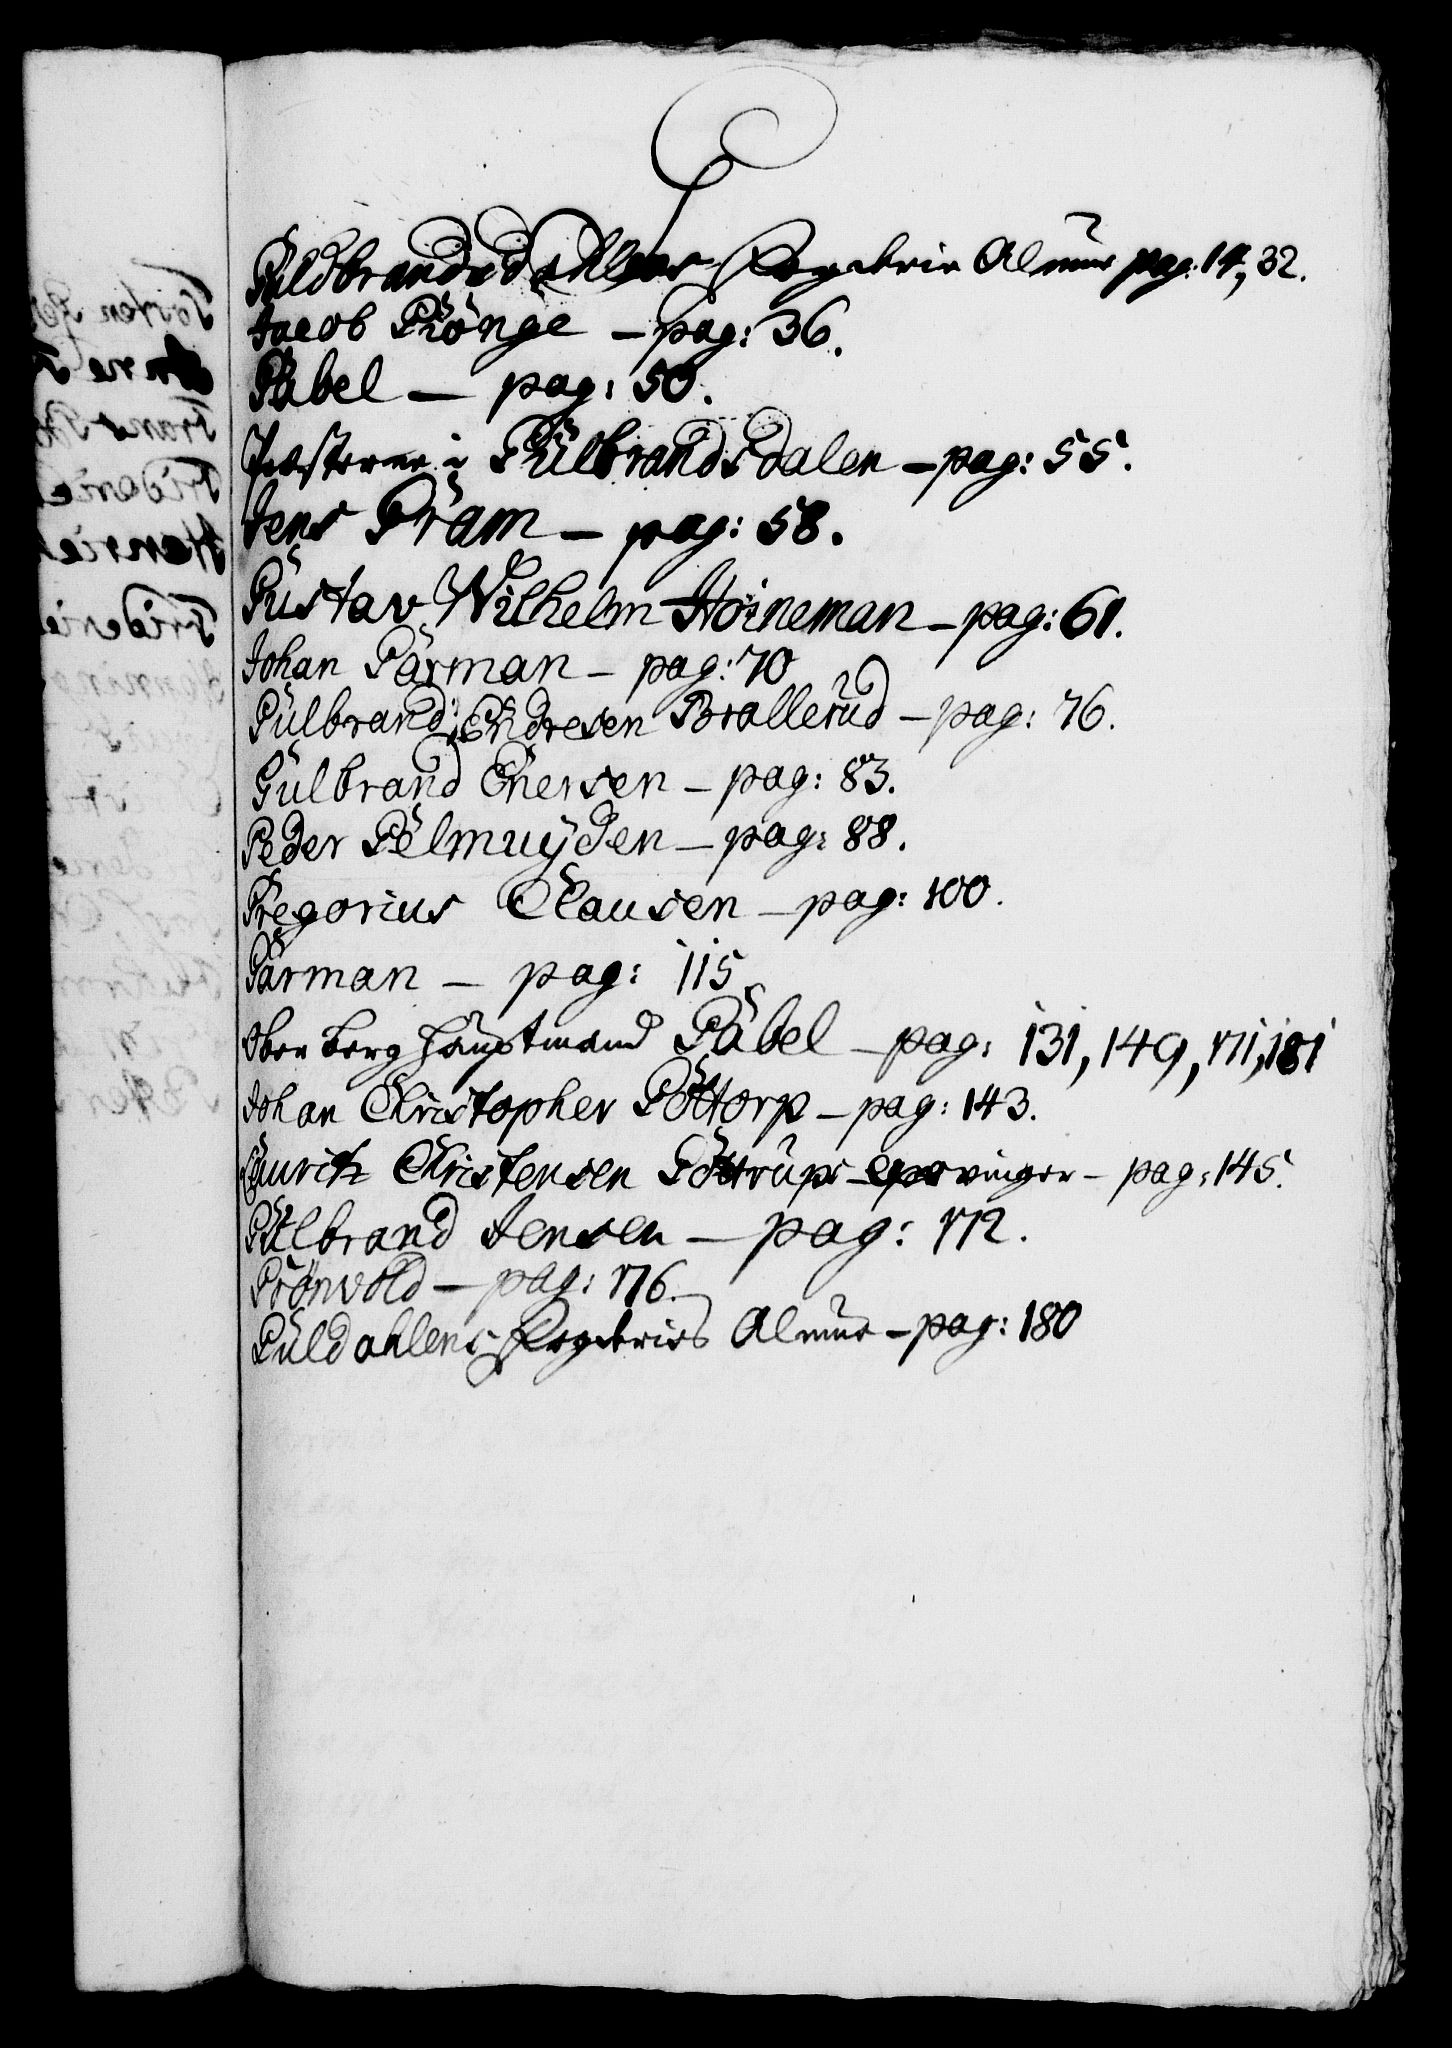 G
Guldbrandsdahlens Fogderie Almue pag: 14, 32.
Jacob Grönge – pag: 36.
Gabel – pag: 50.
Præsterne i Gulbrandsdalen – pag: 55.
Jens Gram – pag: 58.
Gustav Wilhelm Hoineman – pag: 61.
Johan Garman – pag: 70
Gulbrand Endresen Brallerud – pag: 76.
Gulbrand Enersen – pag: 83.
Peder Gelmuyden – pag: 88.
Gregorius Clausen – pag: 100.
Garman – pag: 115
Ober Berg Hauptmand Gabel – pag: 131, 149, 171, 181
Johan Christopher Gottorp – pag: 143.
Lauritz Christensen Gottrups – pag: 145.
Gulbrand Jensen – pag: 172.
Grönvold – pag: 176.
Guldahlens Fogderies Almue – pag: 180